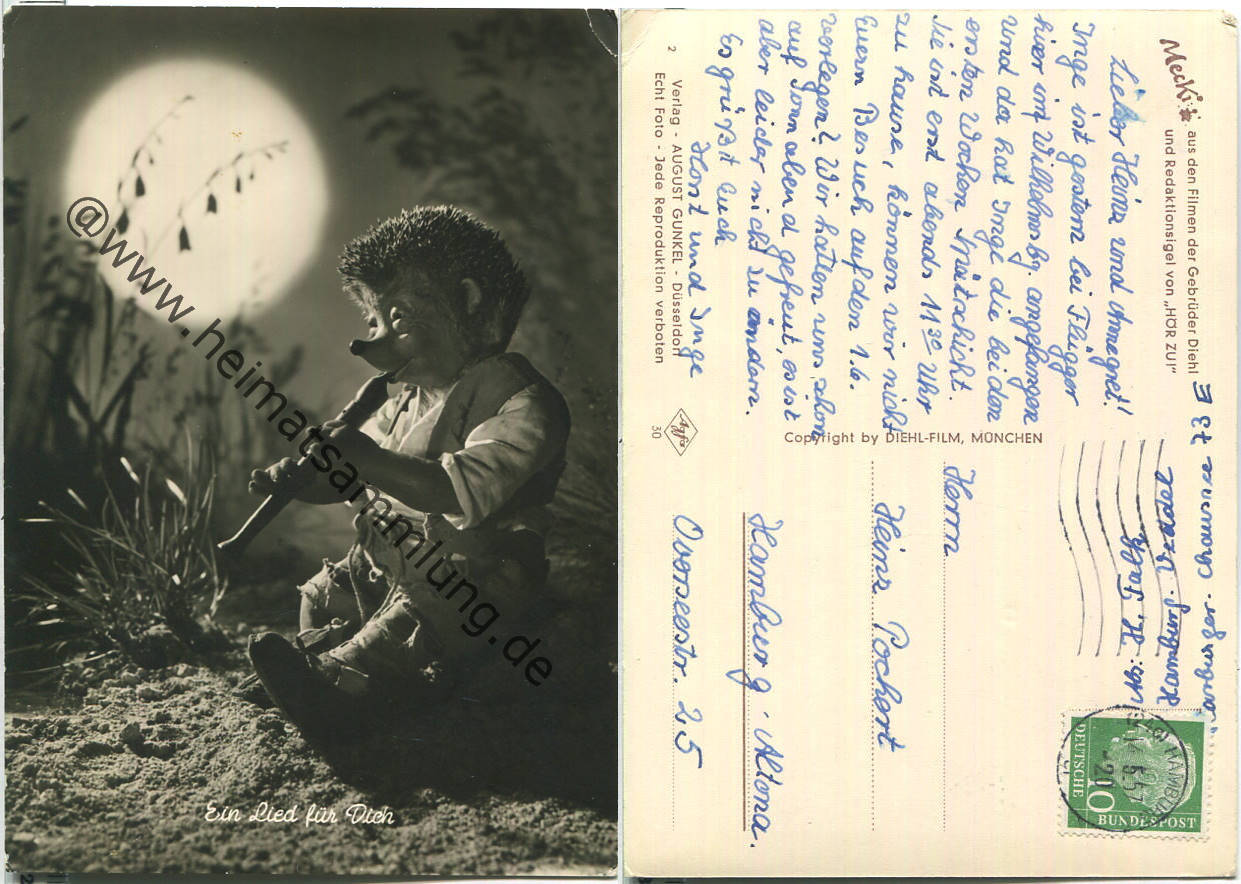 @www.heimatsammlung.de
Ein Lied für Dich
Mecki
aus den Filmen der Gebrüder Diehl
und Redaktionsigel von „HÖR ZU!"
Lieber Heinz und Annegret!
Inge ist gestern bei Flügger
hier in Wilhelmsbg. angefangen
und da hat Inge die beiden
ersten Wochen Spätschicht.
Sie ist erst abends 11³⁰ Uhr
zu hause, können wir nicht
Euern Besuch auf den 1.6.
verlegen? Wir hatten uns schon
auf Sonnabend gefreut, es ist
aber leider nicht zu ändern.
Es grüßt Euch
Horst und Inge
2
Verlag - AUGUST GUNKEL - Düsseldorf
Echt Foto - Jede Reproduktion verboten
Agfa
30
Copyright by DIEHL-FILM, MÜNCHEN
Abs. H.
Hamburg
73
Herrn
Heinz Pochert
Hamburg-Altona.
Oversestr. 25
HAMBURG
-20
DEUTSCHE
10
BUNDESPOST